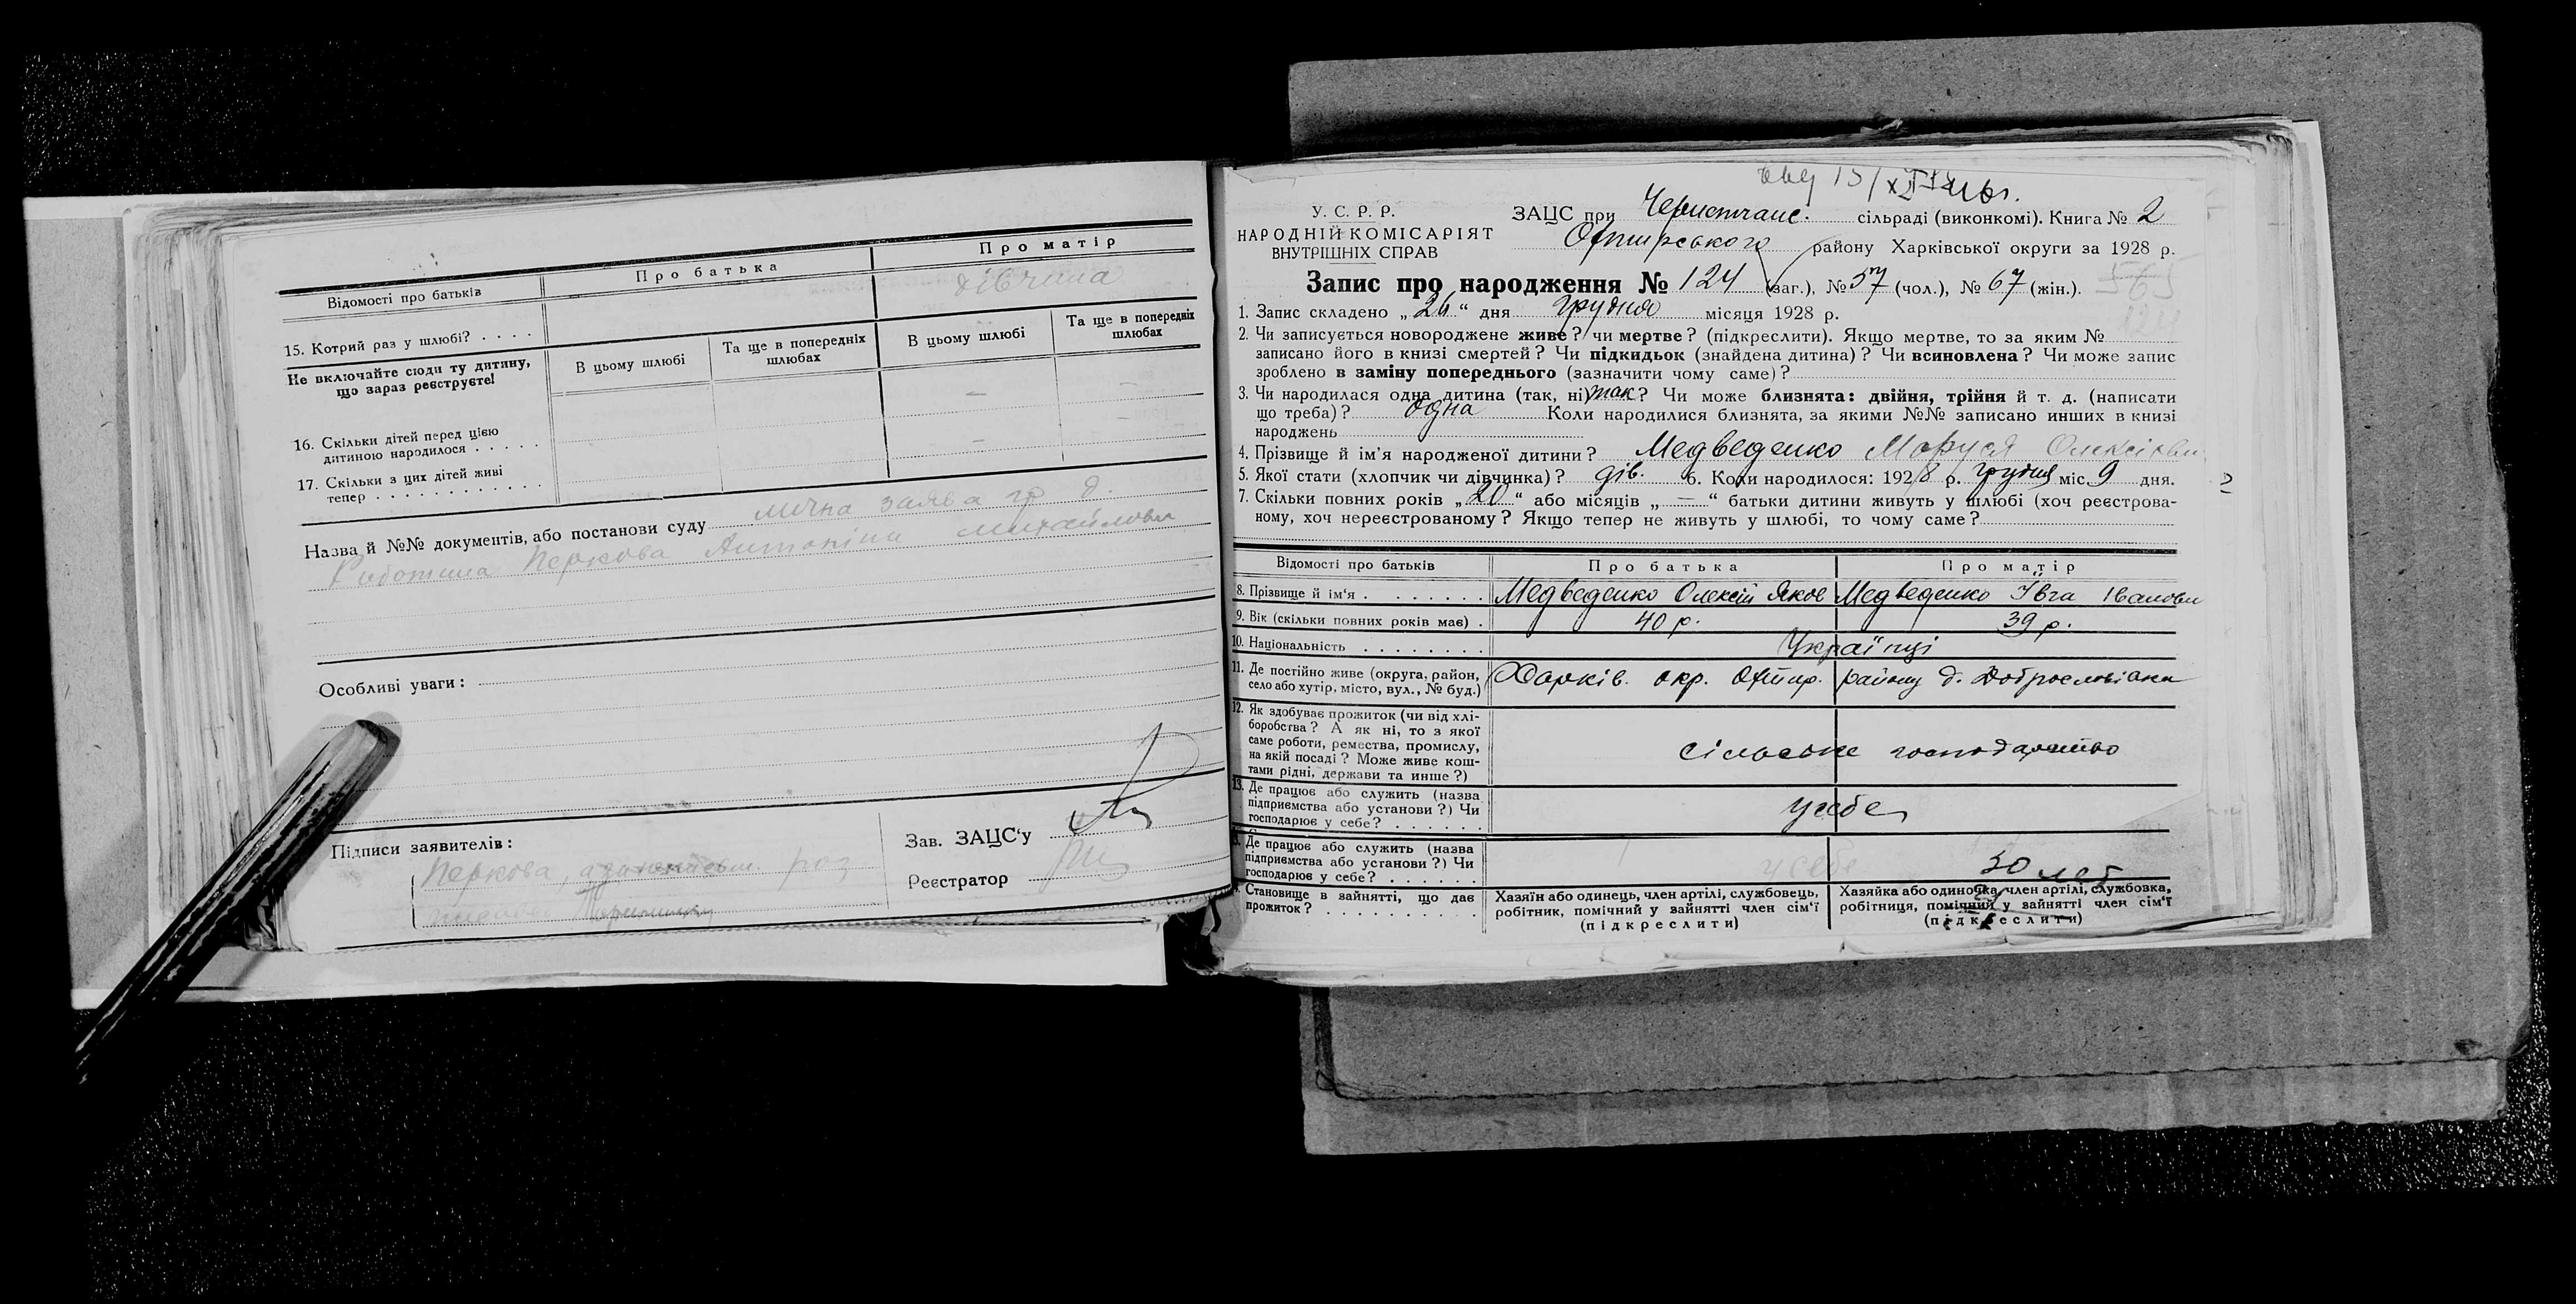 Відомості про батьків
Про батька
Про матір
15. Котрий раз у шлюбі? . . . .
дівчина
Не включайте сюди ту дитину,
що зараз реєструєте!
В цьому шлюбі
Та ще в попередніх
шлюбах
В цьому шлюбі
Та ще в попередніх
шлюбах
16. Скільки дітей перед цією
дитиною народилося . . . . .
— —
17. Скільки з цих дітей живі
тепер . . . . . . . . . . . .
— —
Назва й №№ документів, або постанови суду лична заява гр д.
Перкова Антоніна Михайловн
Особливі уваги:
Підписи заявителів:
Перкова,
Зав. ЗАЦС'у
Реєстратор
У. С. Р. Р.
НАРОДНІЙ КОМІСАРІЯТ
ВНУТРІШНІХ СПРАВ
ЗАЦС при сільраді (виконкомі). Книга № 2
району Харківської округи за 1928 р.
Запис про народження № 124 (заг.), № 57 (чол.), № 67 (жін.).
1. Запис складено „26“ дня грудня місяця 1928 р.
2. Чи записується новороджене живе? чи мертве? (підкреслити). Якщо мертве, то за яким №
записано його в книзі смертей? Чи підкидьок (знайдена дитина)? Чи всиновлена? Чи може запис
зроблено в заміну попереднього (зазначити чому саме)?
3. Чи народилася одна дитина (так, ні) так? Чи може близнята: двійня, трійня й т. д. (написати
що треба)? одна Коли народилися близнята, за якими №№ записано инших в книзі
народжень
4. Прізвище й ім'я народженої дитини? Медведенко Маруся Олексіівн
5. Якої стати (хлопчик чи дівчинка)? дів. 6. Коли народилося: 1928 р. грудня міс 9 дня.
7. Скільки повних років „20“ або місяців „—“ батьки дитини живуть у шлюбі (хоч реєстрова-
ному, хоч нереєстрованому? Якщо тепер не живуть у шлюбі, то чому саме?
Відомості про батьків
Про батька
Про матір
8. Прізвище й ім'я . . . . . . .
Медведенко Олексій Яков
Медведенко Ївга Івановн
9. Вік (скільки повних років має) .
40 р.
39 р.
10. Національність . . . . . . . .
Українці
11. Де постійно живе (округа, район,
село або хутір, місто, вул., № буд.)
Харків. окр. Охтир. району д. Доброславівка
12. Як здобуває прожиток (чи від хлі-
боробства? А як ні, то з якої
саме роботи, ремества, промислу,
на якій посаді? Може живе кош-
тами рідні, держави та инше?)
сільське господарство
13. Де працює або служить (назва
підприємства або установи?) Чи
господарює у себе? . . . . . .
у себе
Де працює або служить (назва
підприємства або установи?) Чи
господарює у себе? . . . . . .
у себе
30 лет
Становище в зайнятті, що дає
прожиток? . . . . . . . . . .
Хазяїн або одинець, член артілі, службовець,
робітник, помічний у зайнятті член сім'ї
(підкреслити)
Хазяйка або одиночка, член артілі, службовка,
робітниця, помічний у зайнятті член сім'ї
(підкреслити)